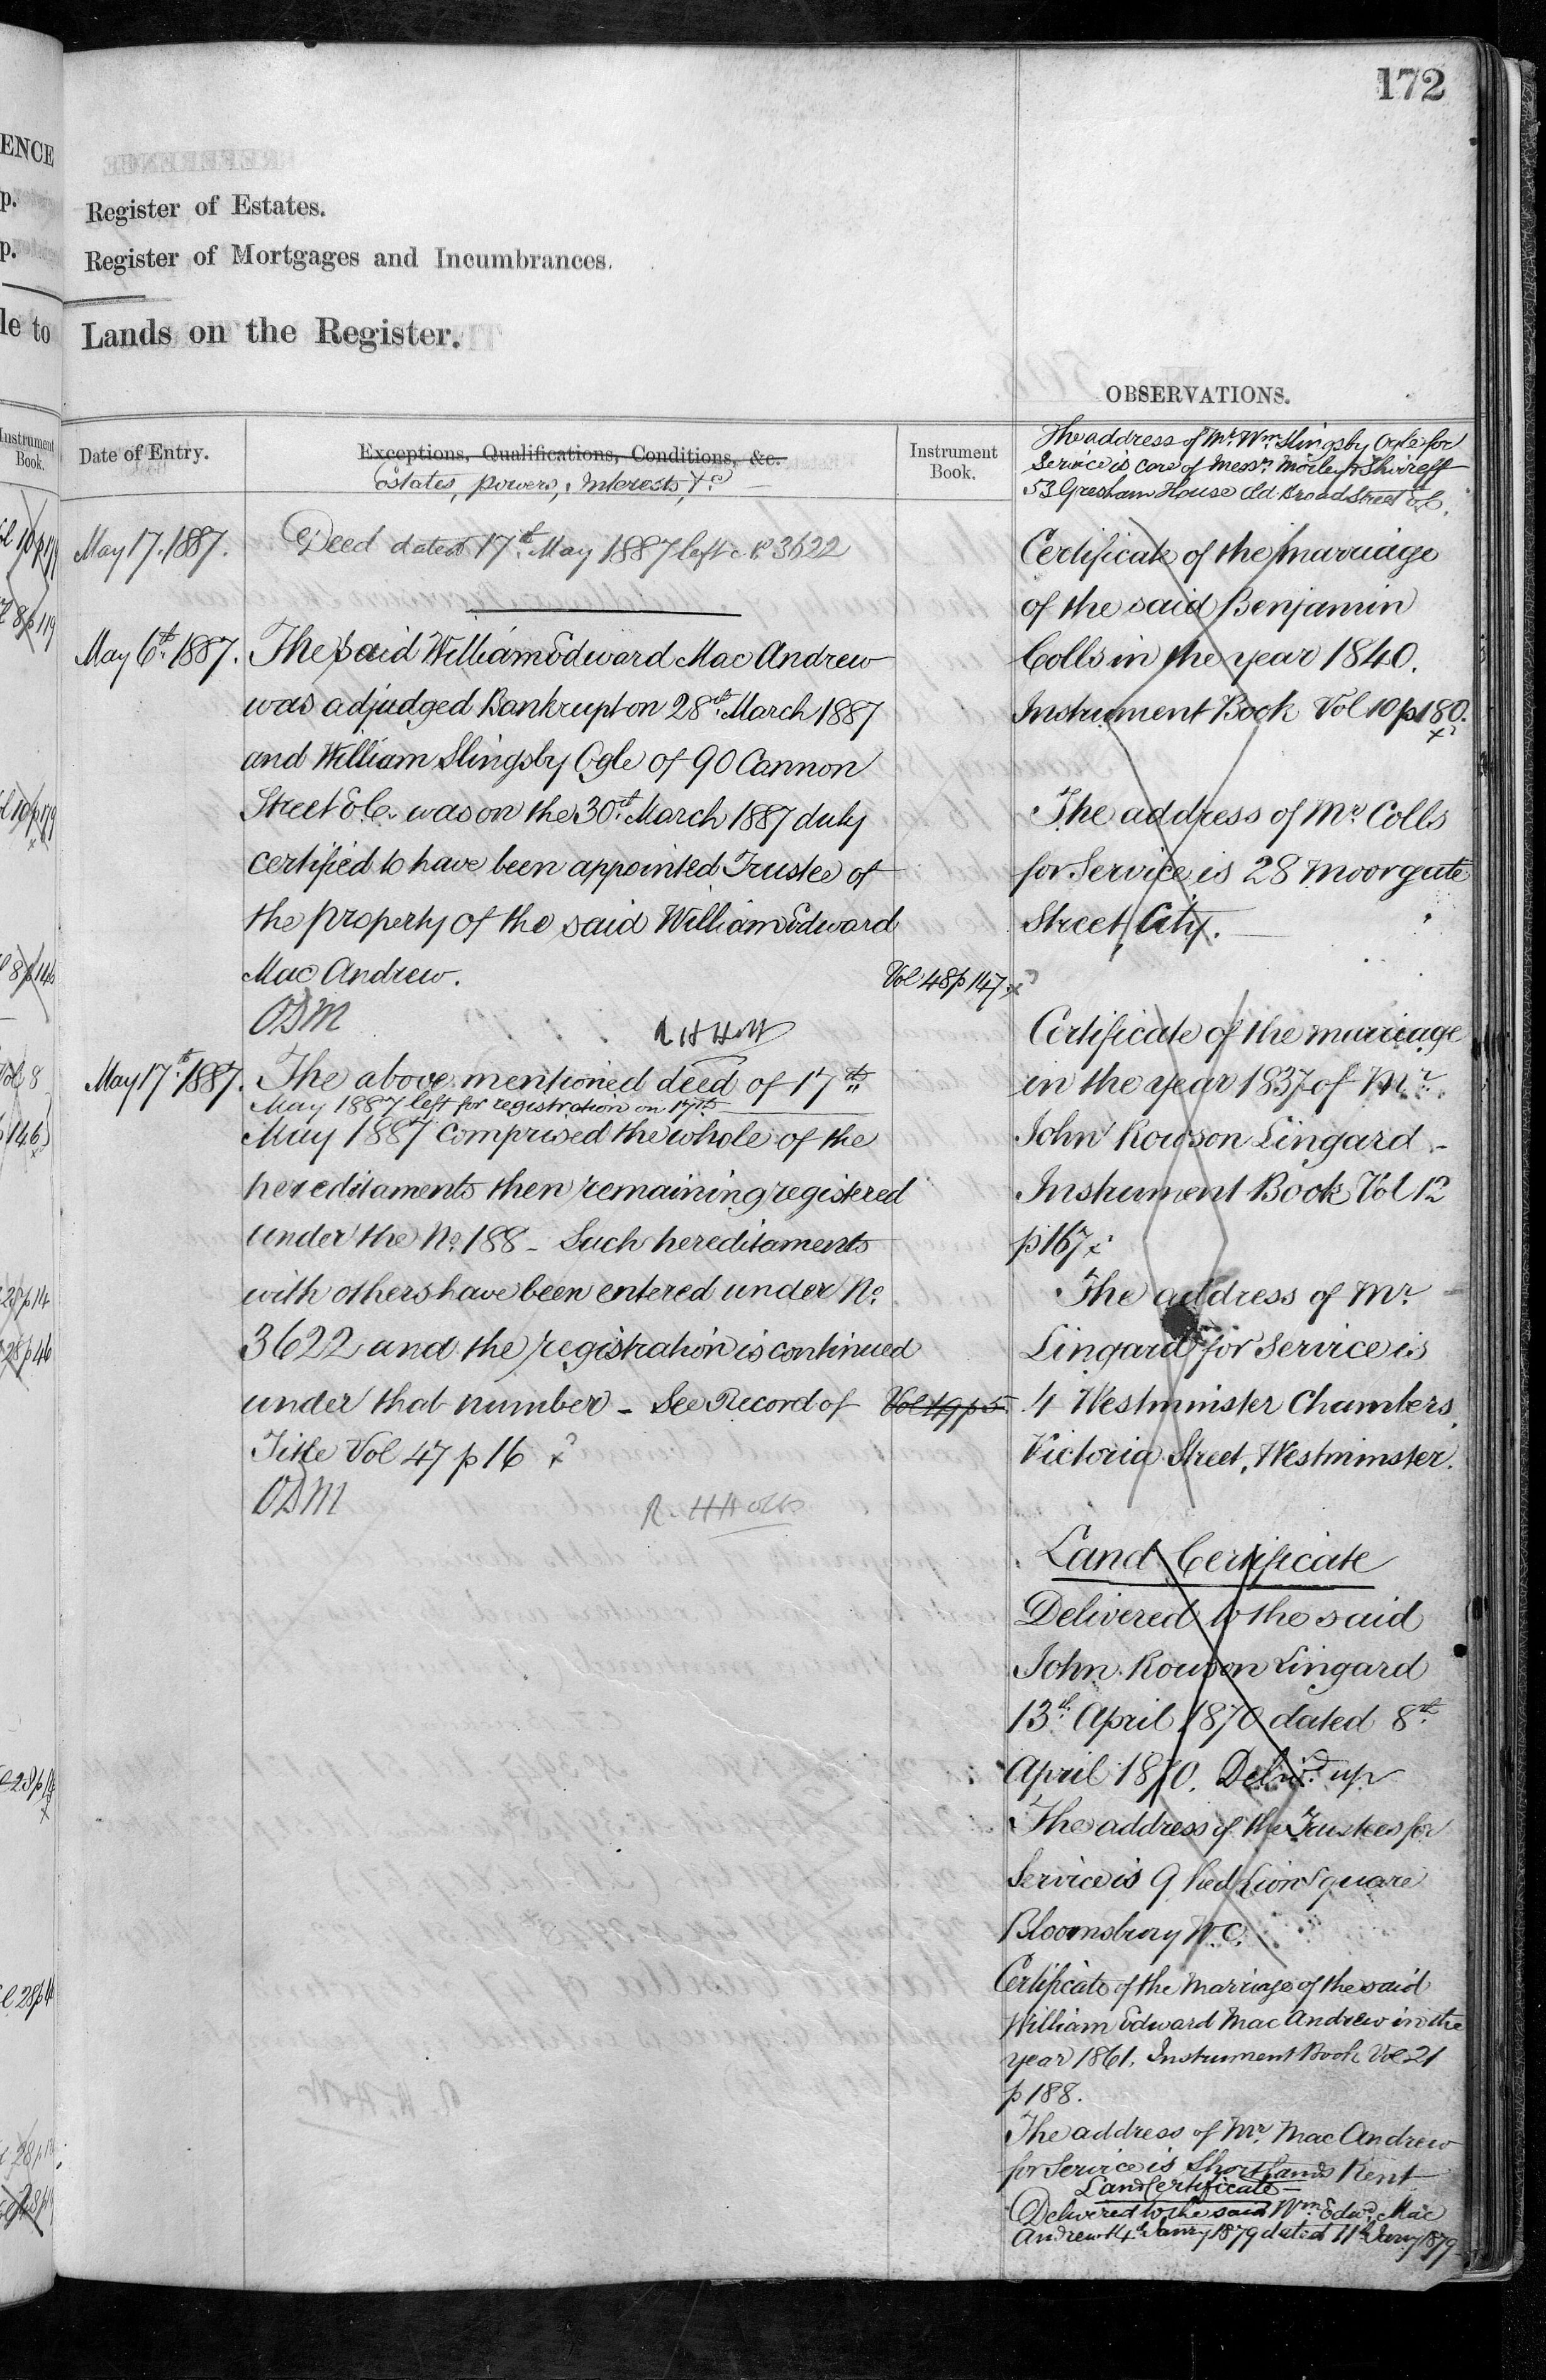 172
ENCE
p.
p.
le to
Instrument
Book.
Register of Estates.
Register of Mortgages and Incumbrances.
Lands on the Register.
OBSERVATIONS.
Date of Entry.
Exceptions, Qualifications, Conditions, &c.
Estates, powers, Interests, &c
Instrument
Book.
May 17. 1887.
Deed dated 17th May 1887 left 3622
May 6th 1887.
The said William Edward Mac Andrew
was adjudged Bankrupt on 28th March 1887
and William Slingsby Ogle of 90 Cannon
Street E.C. was on the 30th March 1887 duly
certified to have been appointed Trustee of
the property of the said William Edward
Mac Andrew.
Vol 48 p 147
ODM
May 17th 1887.
The above mentioned deed of 17th
May 1887 left for registration on 17th
May 1887 comprised the whole of the
hereditaments then remaining registered
under the No. 188 - Such hereditaments
with others have been entered under No.
3622 and the registration is continued
under that number - See Record of
Vol 49 p 5
Title Vol 47 p 16
ODM
The address of Mr. Wm. Slingsby Ogle for
Service is care of Messrs Morley & Shirreff
53 Gresham House Old Broad Street E.C.
Certificate of the marriage
of the said Benjamin
Colls in the year 1840.
Instrument Book Vol 10 p 180.
The address of Mr Colls
for Service is 28 Moorgate
Street City.
Certificate of the marriage
in the year 1837 of Mr.
John Rowson Lingard -
Instrument Book Vol 12
p 167
The address of Mr.
Lingard for Service is
4 Westminster Chambers,
Victoria Street, Westminster.
Land Certificate
Delivered to the said
John Rowson Lingard
13th April 1870 dated 8th
April 1870. Deliv'd. up
The address of the Trustees for
Service is 9 Red Lion Square
Bloomsbury W.C.
Certificate of the Marriage of the said
William Edward Mac Andrew in the
year 1861. Instrument Book Vol 21
p 188.
The address of Mr. Mac Andrew
for Service is Shortlands Kent
Land Certificate
Delivered to the said Wm. Edwd. Mac
Andrew 14th Janry 1879 dated 11th Janry 1879